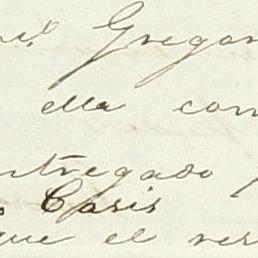 Gregor
ella con
ntregado
Casis
que el res